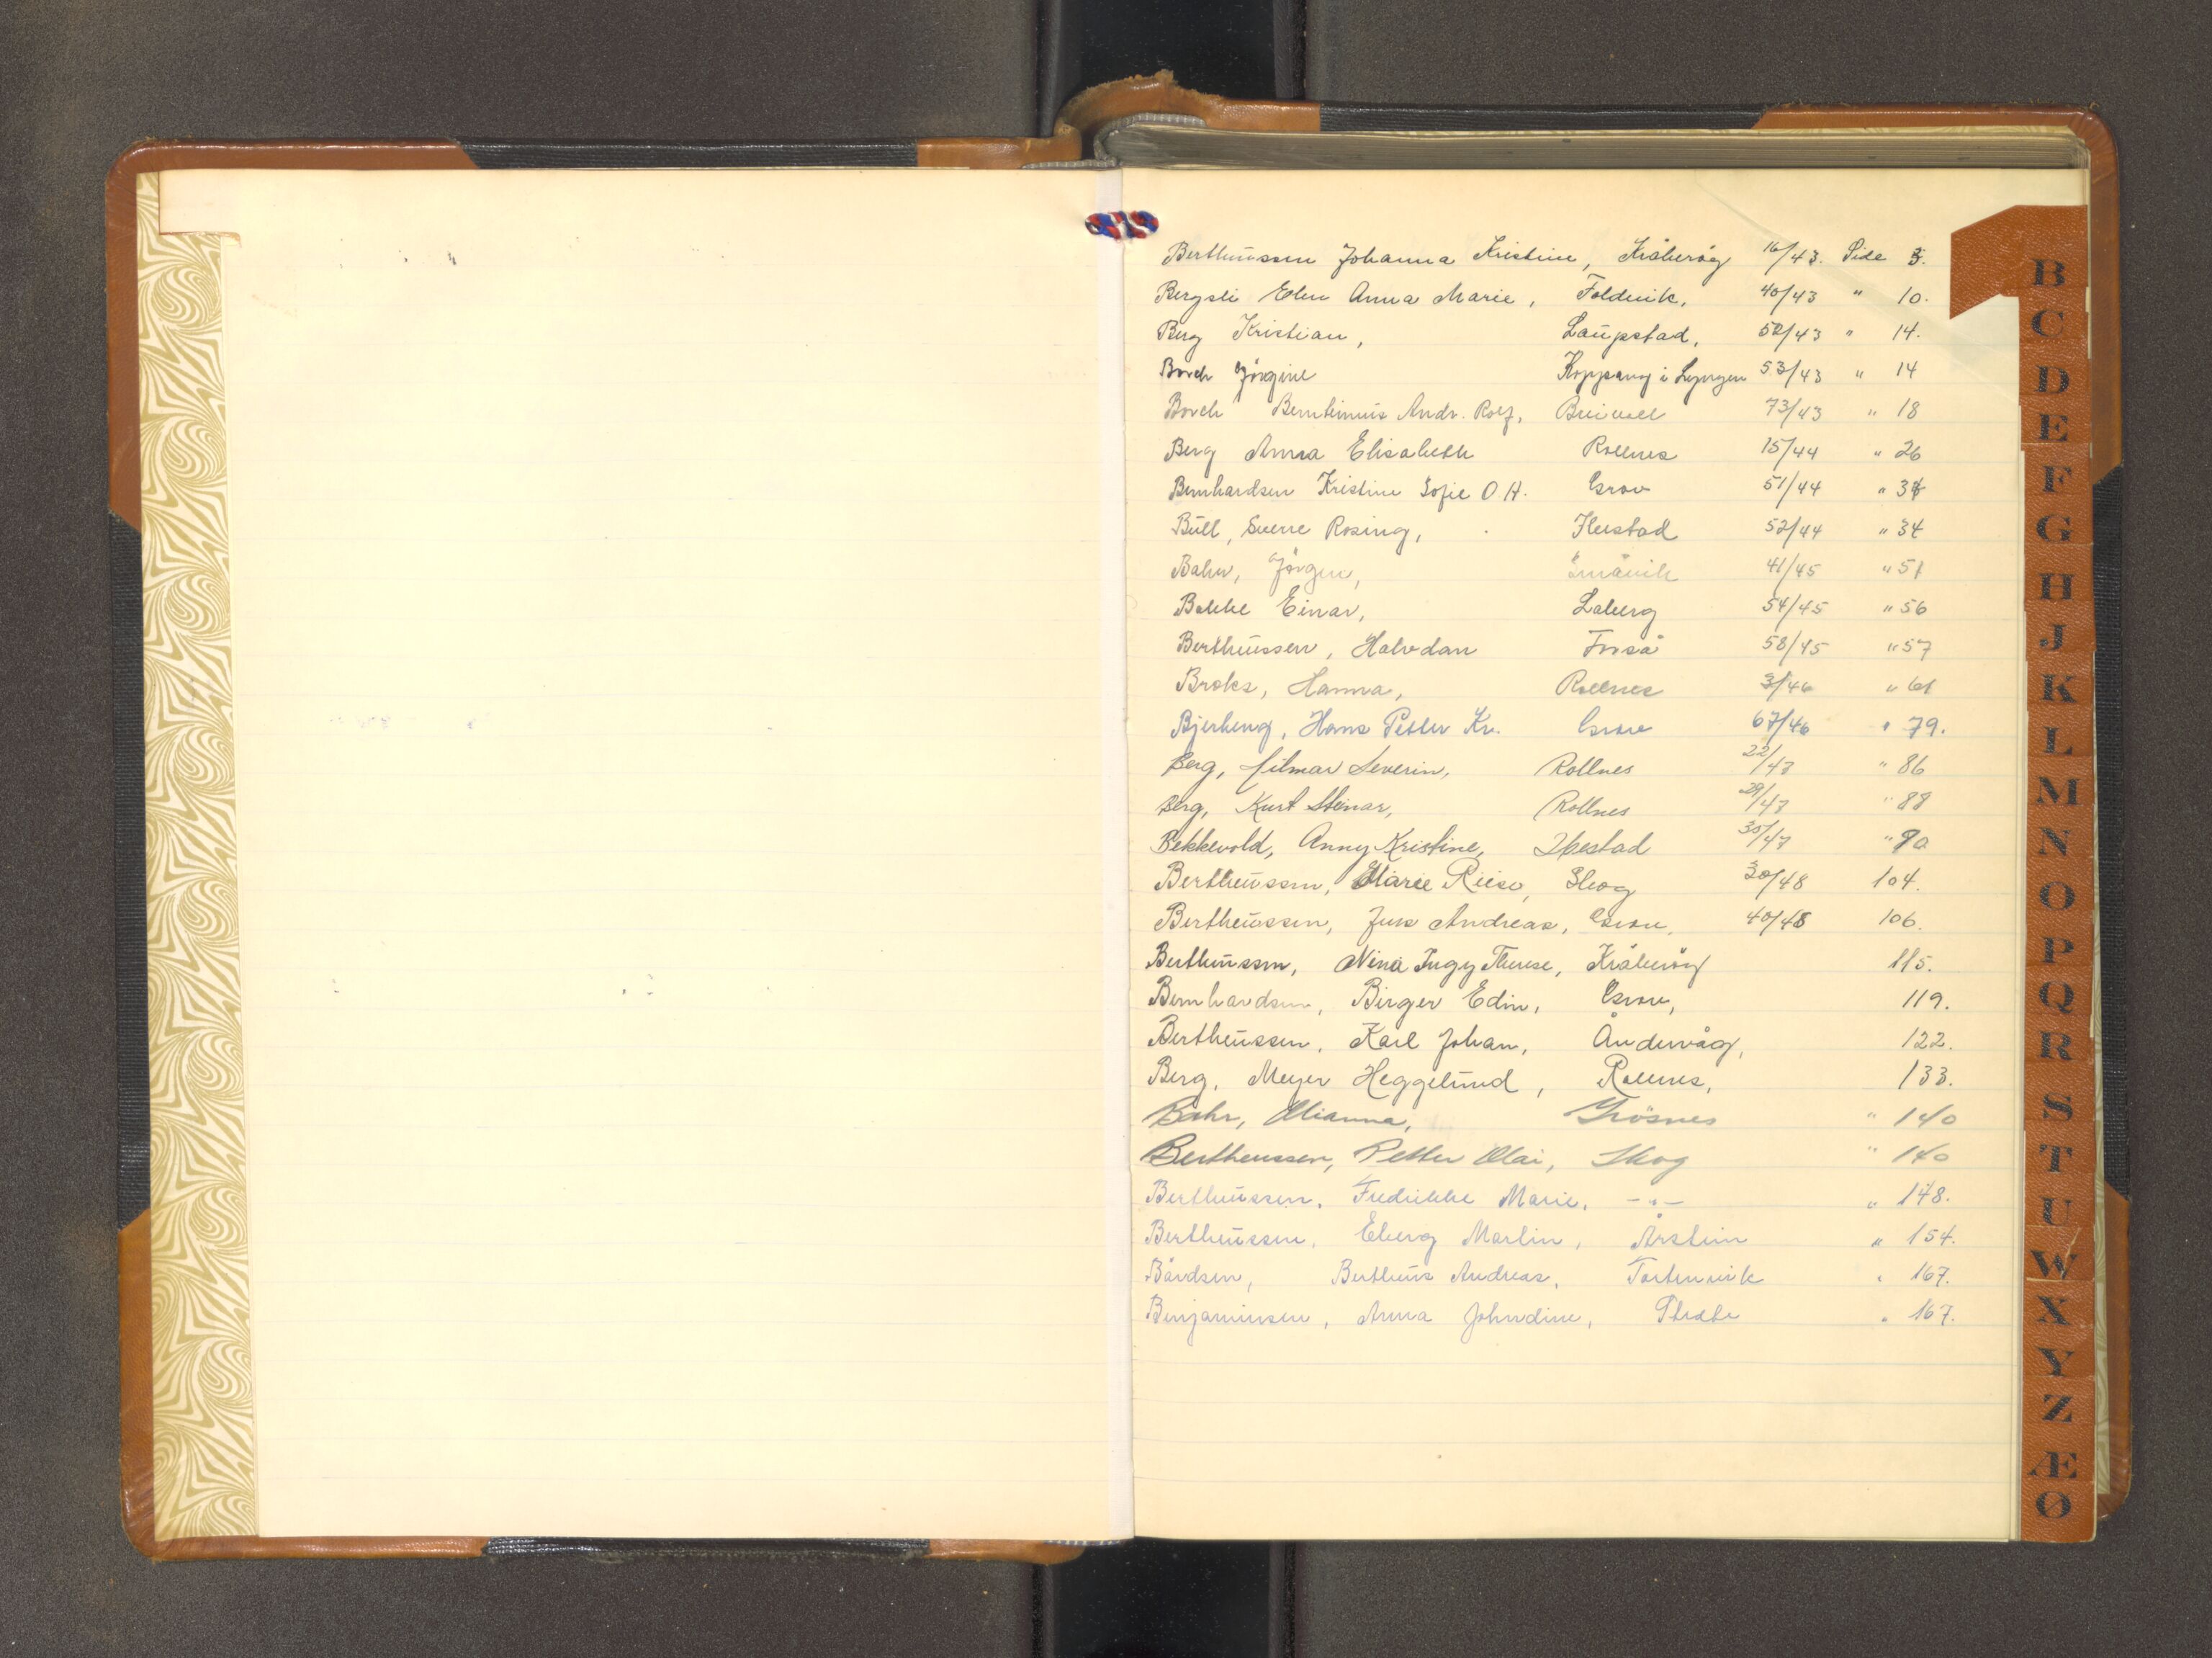 Bertheussen Johanna Kristine, Kråkerøy 16/43. Side 3.
Bergsli Elen Anna Marie, Foldvik, 40/43 " 10.
Berg Kristian, Laupstad, 52/43 " 14.
Borch Jørgine Koppang i Lyngen 53/43 " 14
Borch Bernhinus Andr. Rolf, Breivoll 73/43 " 18
Berg Anna Elisabeth Rollnes 15/44 " 26
Bernhardsen Kristine Sofie O.H. Grov 51/44 " 34
Bull, Sverre Rosing, Ibestad 52/44 " 34
Bahr, Jørgen, Småvik 41/45 " 51
Bakke Einar, Laberg 54/45 " 56
Bertheussen, Halvdan Forså 58/45 " 57
Broks, Hanna, Rollnes 3/46 " 61
Bjerkeng, Hans Petter Kr. Grov 67/46 " 79.
Berg, Hilmar Severin, Rollnes 22/47 " 86
Berg, Kurt Steinar, Rollnes 29/47 " 88
Bekkevold, Anny Kristine, Ibestad 35/47 " 90
Bertheussen, Marie Riise, Skog 30/48 104.
Bertheussen, Jens Andreas, Grov, 40/48 106.
Bertheussen, Nina Ingy Therese, Kråkerøy 115.
Bernhardsen, Birger Edin, Grov, 119.
Bertheussen, Karl Johan, Åndervåg, 122.
Berg, Meyer Heggelund, Rollnes, 133.
Bahr, Olianna, Grøsnes " 140
Bertheussen, Petter Olai, Skog " 140
Bertheussen, Fredrikke Marie, -"- " 148.
Bertheussen, Eberg Martin, Årstein " 154.
Bårdsen, Bertheus Andreas, Tortenvik " 167.
Benjaminsen, Anna Johndine, " 167.
B
C
D
E
F
G
H
J
K
L
M
N
O
P
Q
R
S
T
U
W
X
Y
Z
Æ
Ø